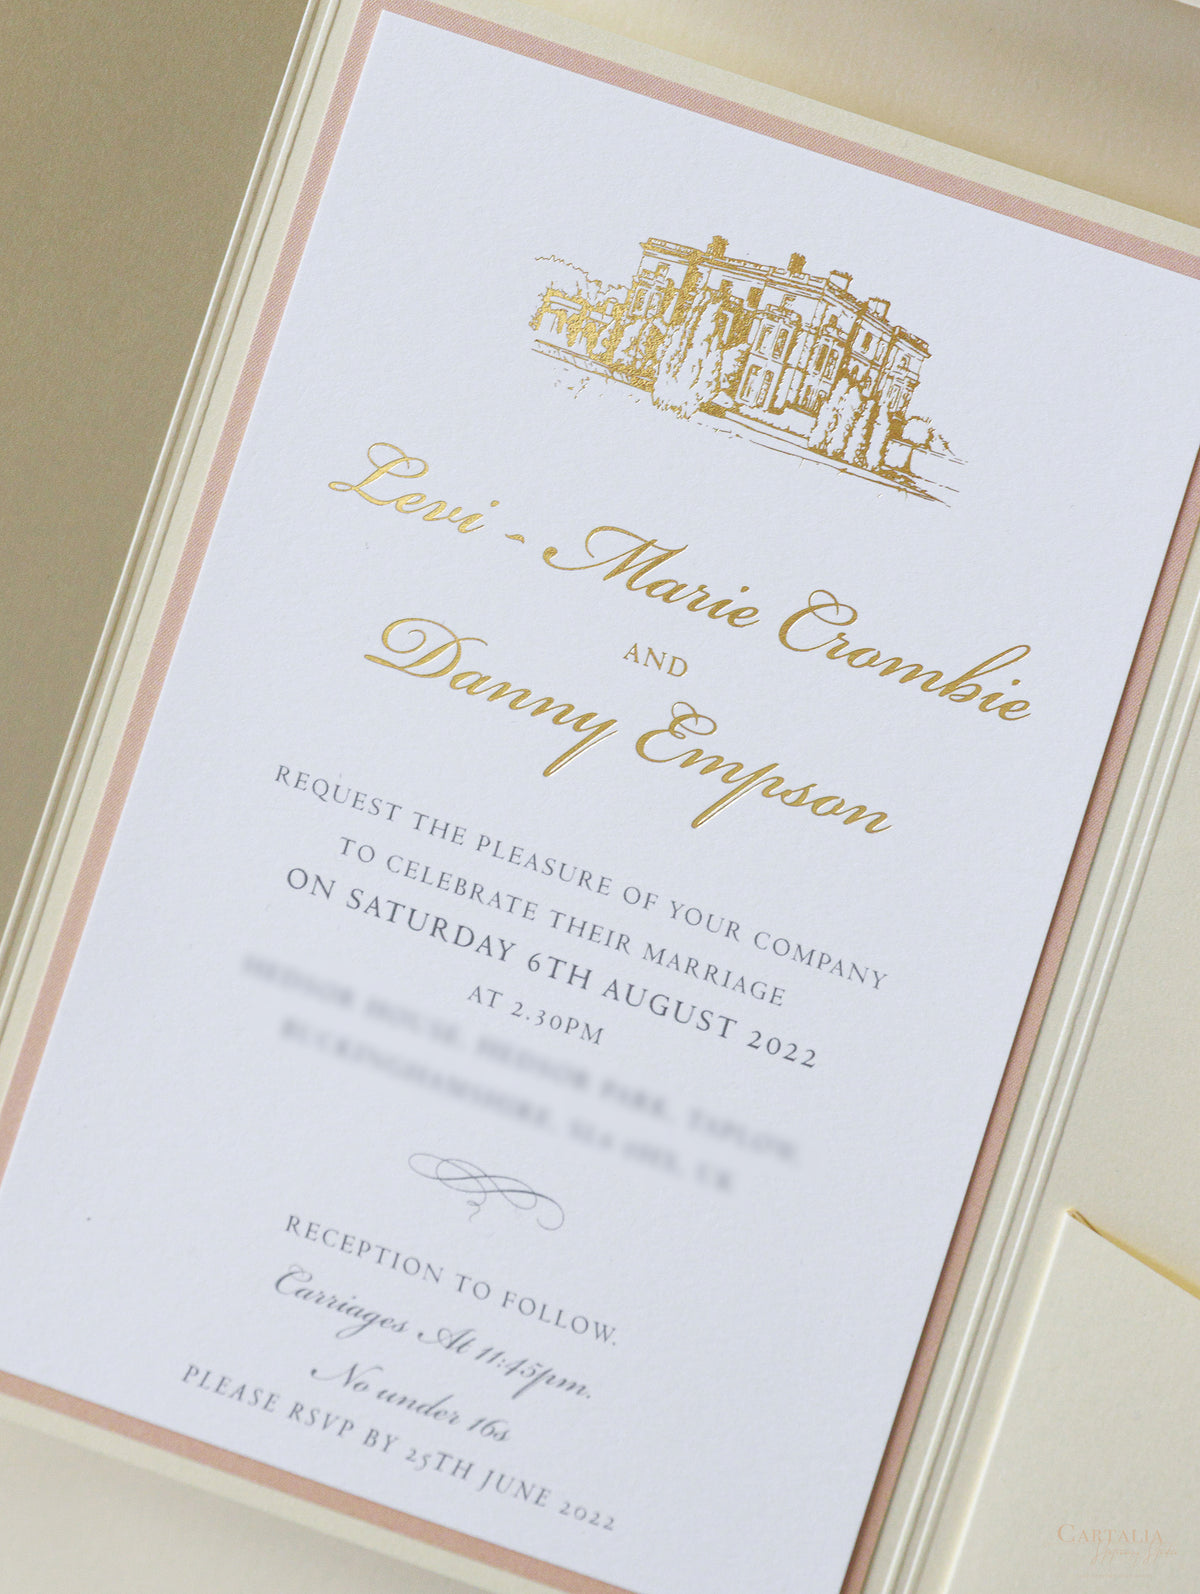 Levi - Marie Crombie
AND
Danny Empson
REQUEST THE PLEASURE OF YOUR COMPANY
TO CELEBRATE THEIR MARRIAGE
ON SATURDAY 6TH AUGUST 2022
AT 2.30PM
RECEPTION TO FOLLOW.
Carriages At 11:45pm.
No under 16s
PLEASE RSVP BY 25TH JUNE 2022
CARTALIA